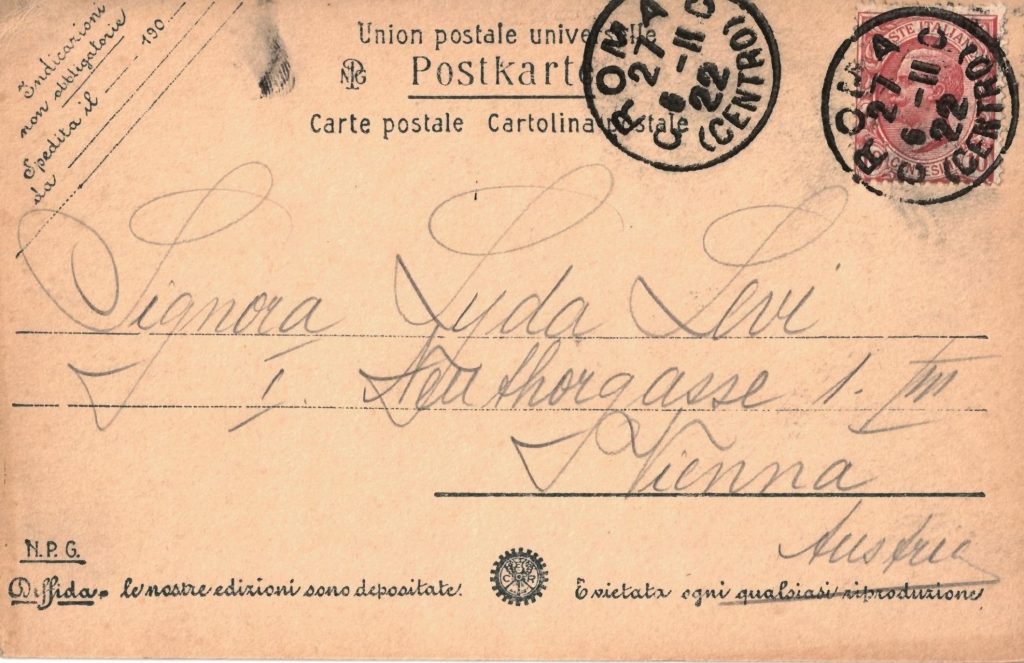 Indicazioni
non obbligatorie
Spedita il 190
da
Union postale universelle
NPG Postkarte
Carte postale Cartolina postale
ROMA
27
6-11 C
22
(CENTRO)
ROMA
27
6-11 C
22
(CENTRO)
POSTE ITALIANE
CENTESIMI 10
Signora Lyda Levi
I, Neuthorgasse 1. III
Vienna
Austria
N.P.G.
Diffida - le nostre edizioni sono depositate.
E vietata ogni qualsiasi riproduzione